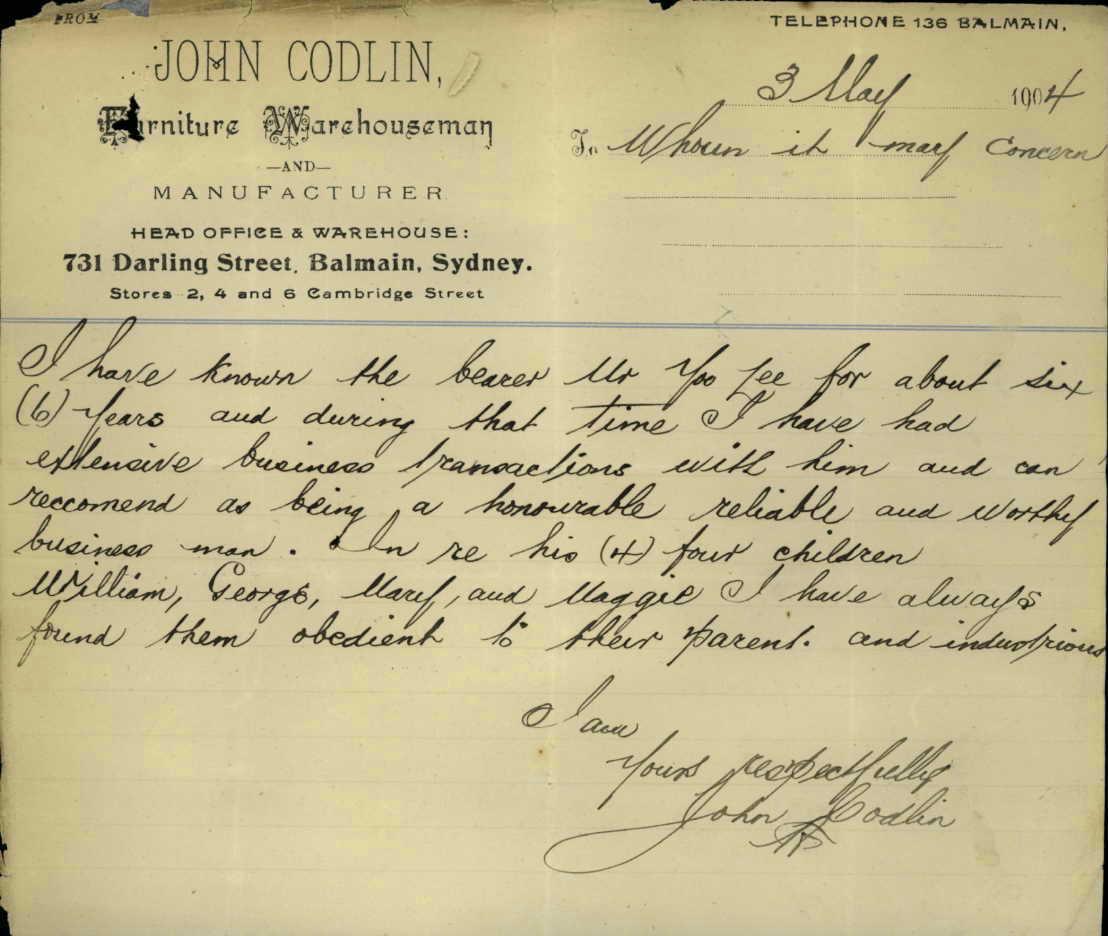 FROM
TELEPHONE 136 BALMAIN.
JOHN CODLIN,
Furniture Warehouseman
—AND—
MANUFACTURER
HEAD OFFICE & WAREHOUSE:
731 Darling Street, Balmain, Sydney.
Stores 2, 4 and 6 Cambridge Street
3 May 1904
To Whoum it may Concern
I have known the bearer Mr Yoo Lee for about six
(6) Years and during that time I have had
extensive business transactions with him and can
reccomend as being a honourable reliable and worthy
business man. In re his (4) four children
William, George, Mary, and Maggie I have always
found them obedient to their parent. and industrious
I am
Yours respectfully
John Codlin